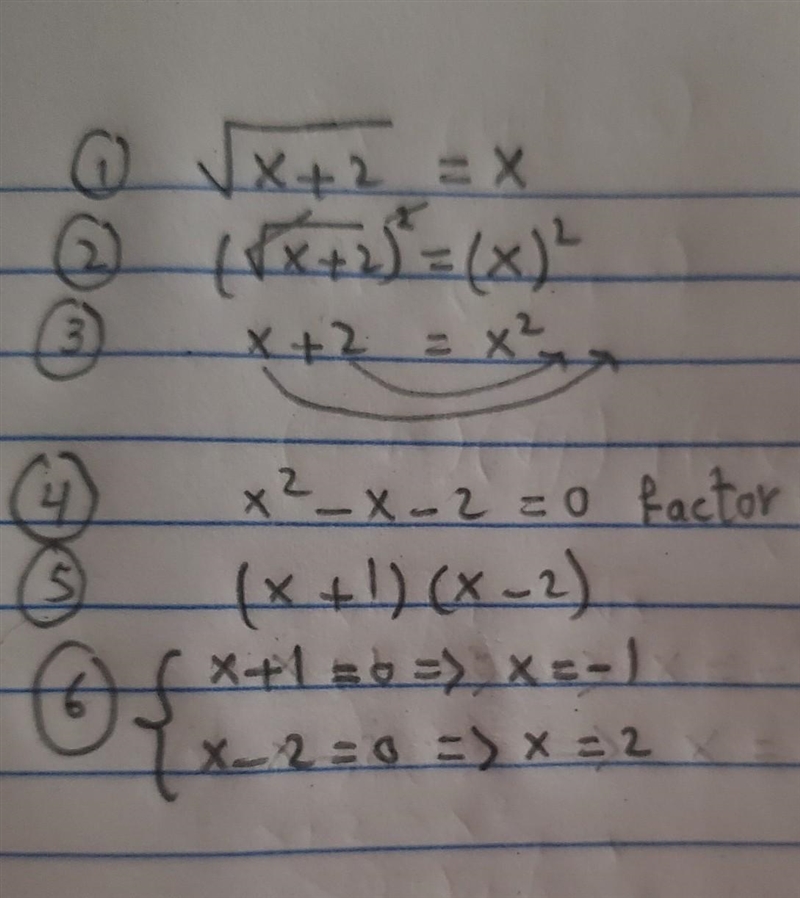 ① √(x+2) = x
② (√(x+2))² = (x)²
③ x + 2 = x²
④ x² - x - 2 = 0 factor
⑤ (x + 1) (x - 2)
⑥ { x+1 = 0 => x = -1
x - 2 = 0 => x = 2